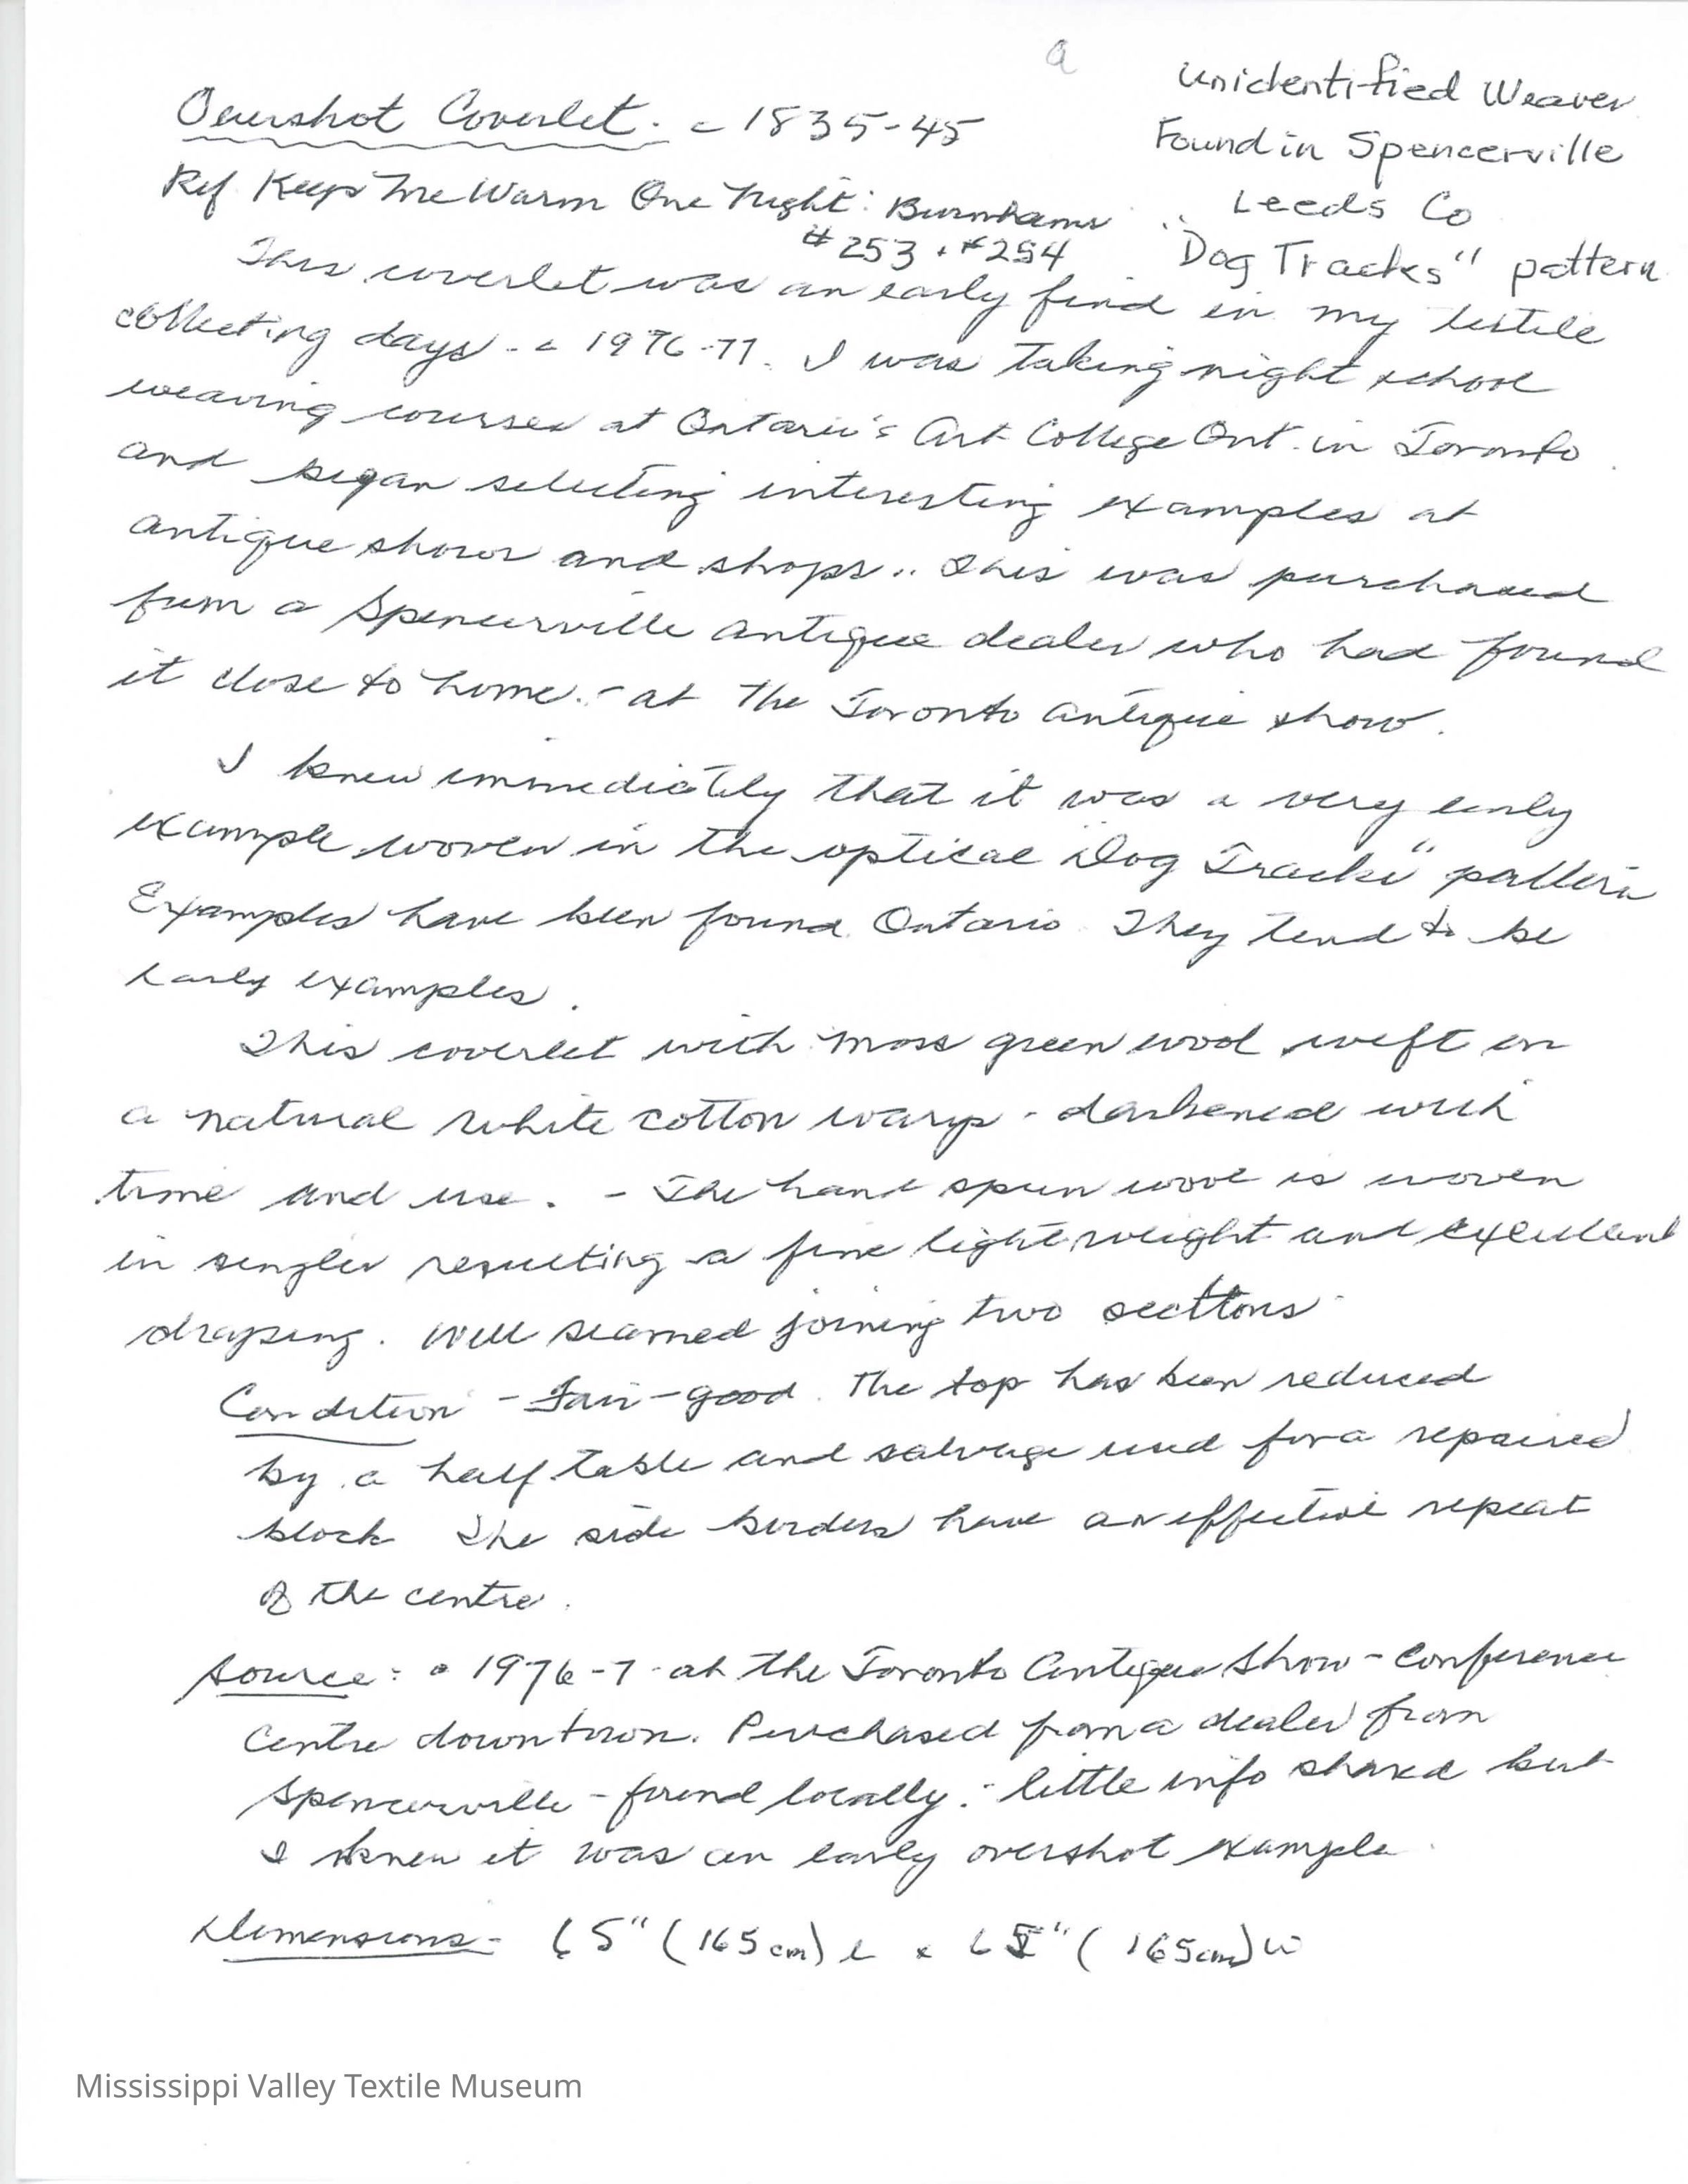 a
Unidentified Weaver
Found in Spencerville
Leeds Co
"Dog Tracks" pattern
Overshot Coverlet. c 1835-45
Ref Keep Me Warm One Night: Burnhams
#253 . #254
This coverlet was an early find in my textile
collecting days - c 1976-77. I was taking night school
weaving courses at Ontario's Art College Ont. in Toronto
and began selecting interesting examples at
antique shows and shops.. This was purchased
from a Spencerville antique dealer who had found
it close to home. - at the Toronto antique show.
I knew immediately that it was a very early
example woven in the optical "Dog Tracks" pattern
Examples have been found Ontario. They tend to be
early examples.
This coverlet with moss green wool weft on
a natural white cotton warp - darkened with
time and use. - The hand spun wool is woven
in singles resulting a fine light weight and excellent
draping. Well seamed joining two sections
Condition - Fair-good. The top has been reduced
by a half table and salvage used for a repaired
block The side borders have an effective repeat
of the centre.
Source: c 1976-7 at the Toronto Antique Show - Conference
Centre downtown. Purchased from a dealer from
Spencerville - found locally. - little info shared but
I knew it was an early overshot example.
Dimensions - 65" (165 cm) L x 65" (165cm) W
Mississippi Valley Textile Museum